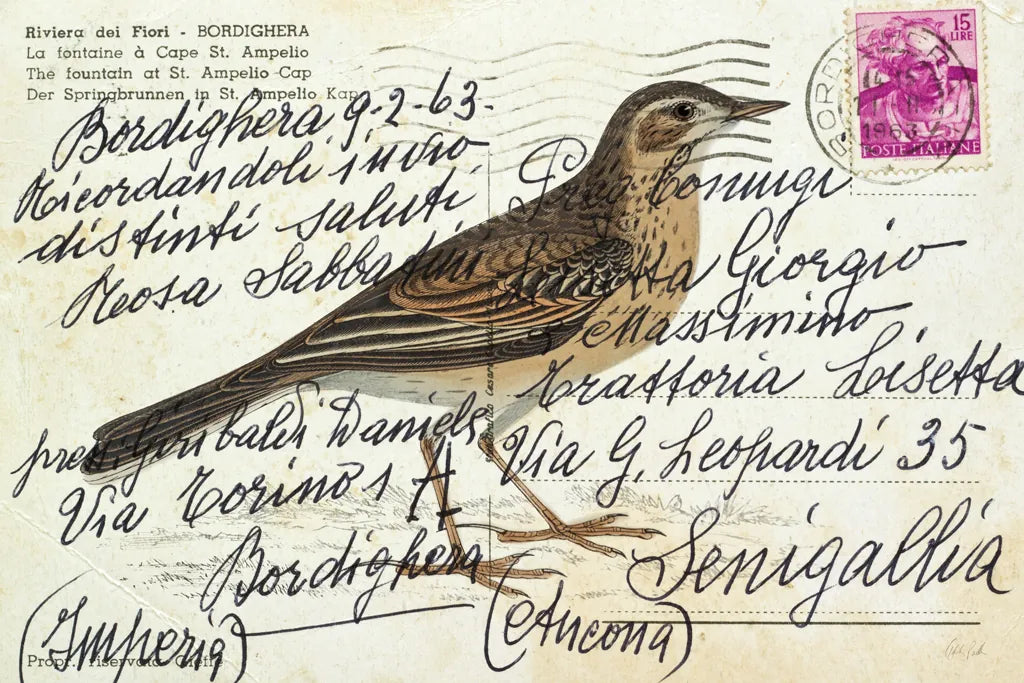 Riviera dei Fiori - BORDIGHERA
La fontaine à Cape St. Ampelio
The fountain at St. Ampelio Cap
Der Springbrunnen in St. Ampelio Kap
Bordighera 9-2-63-
Ricordandoli invio
distinti saluti
Rosa Sabbatini
presso Garibaldi Daniele
Via Torino 1 A
Bordighera
(Imperia)
Propr. riservata Gieffe
15
LIRE
BORDIGHERA
1963
POSTE ITALIANE
Coniugi
Lisetta Giorgio
Massimino
Trattoria Lisetta
Via G. Leopardi 35
Senigallia
(Ancona)